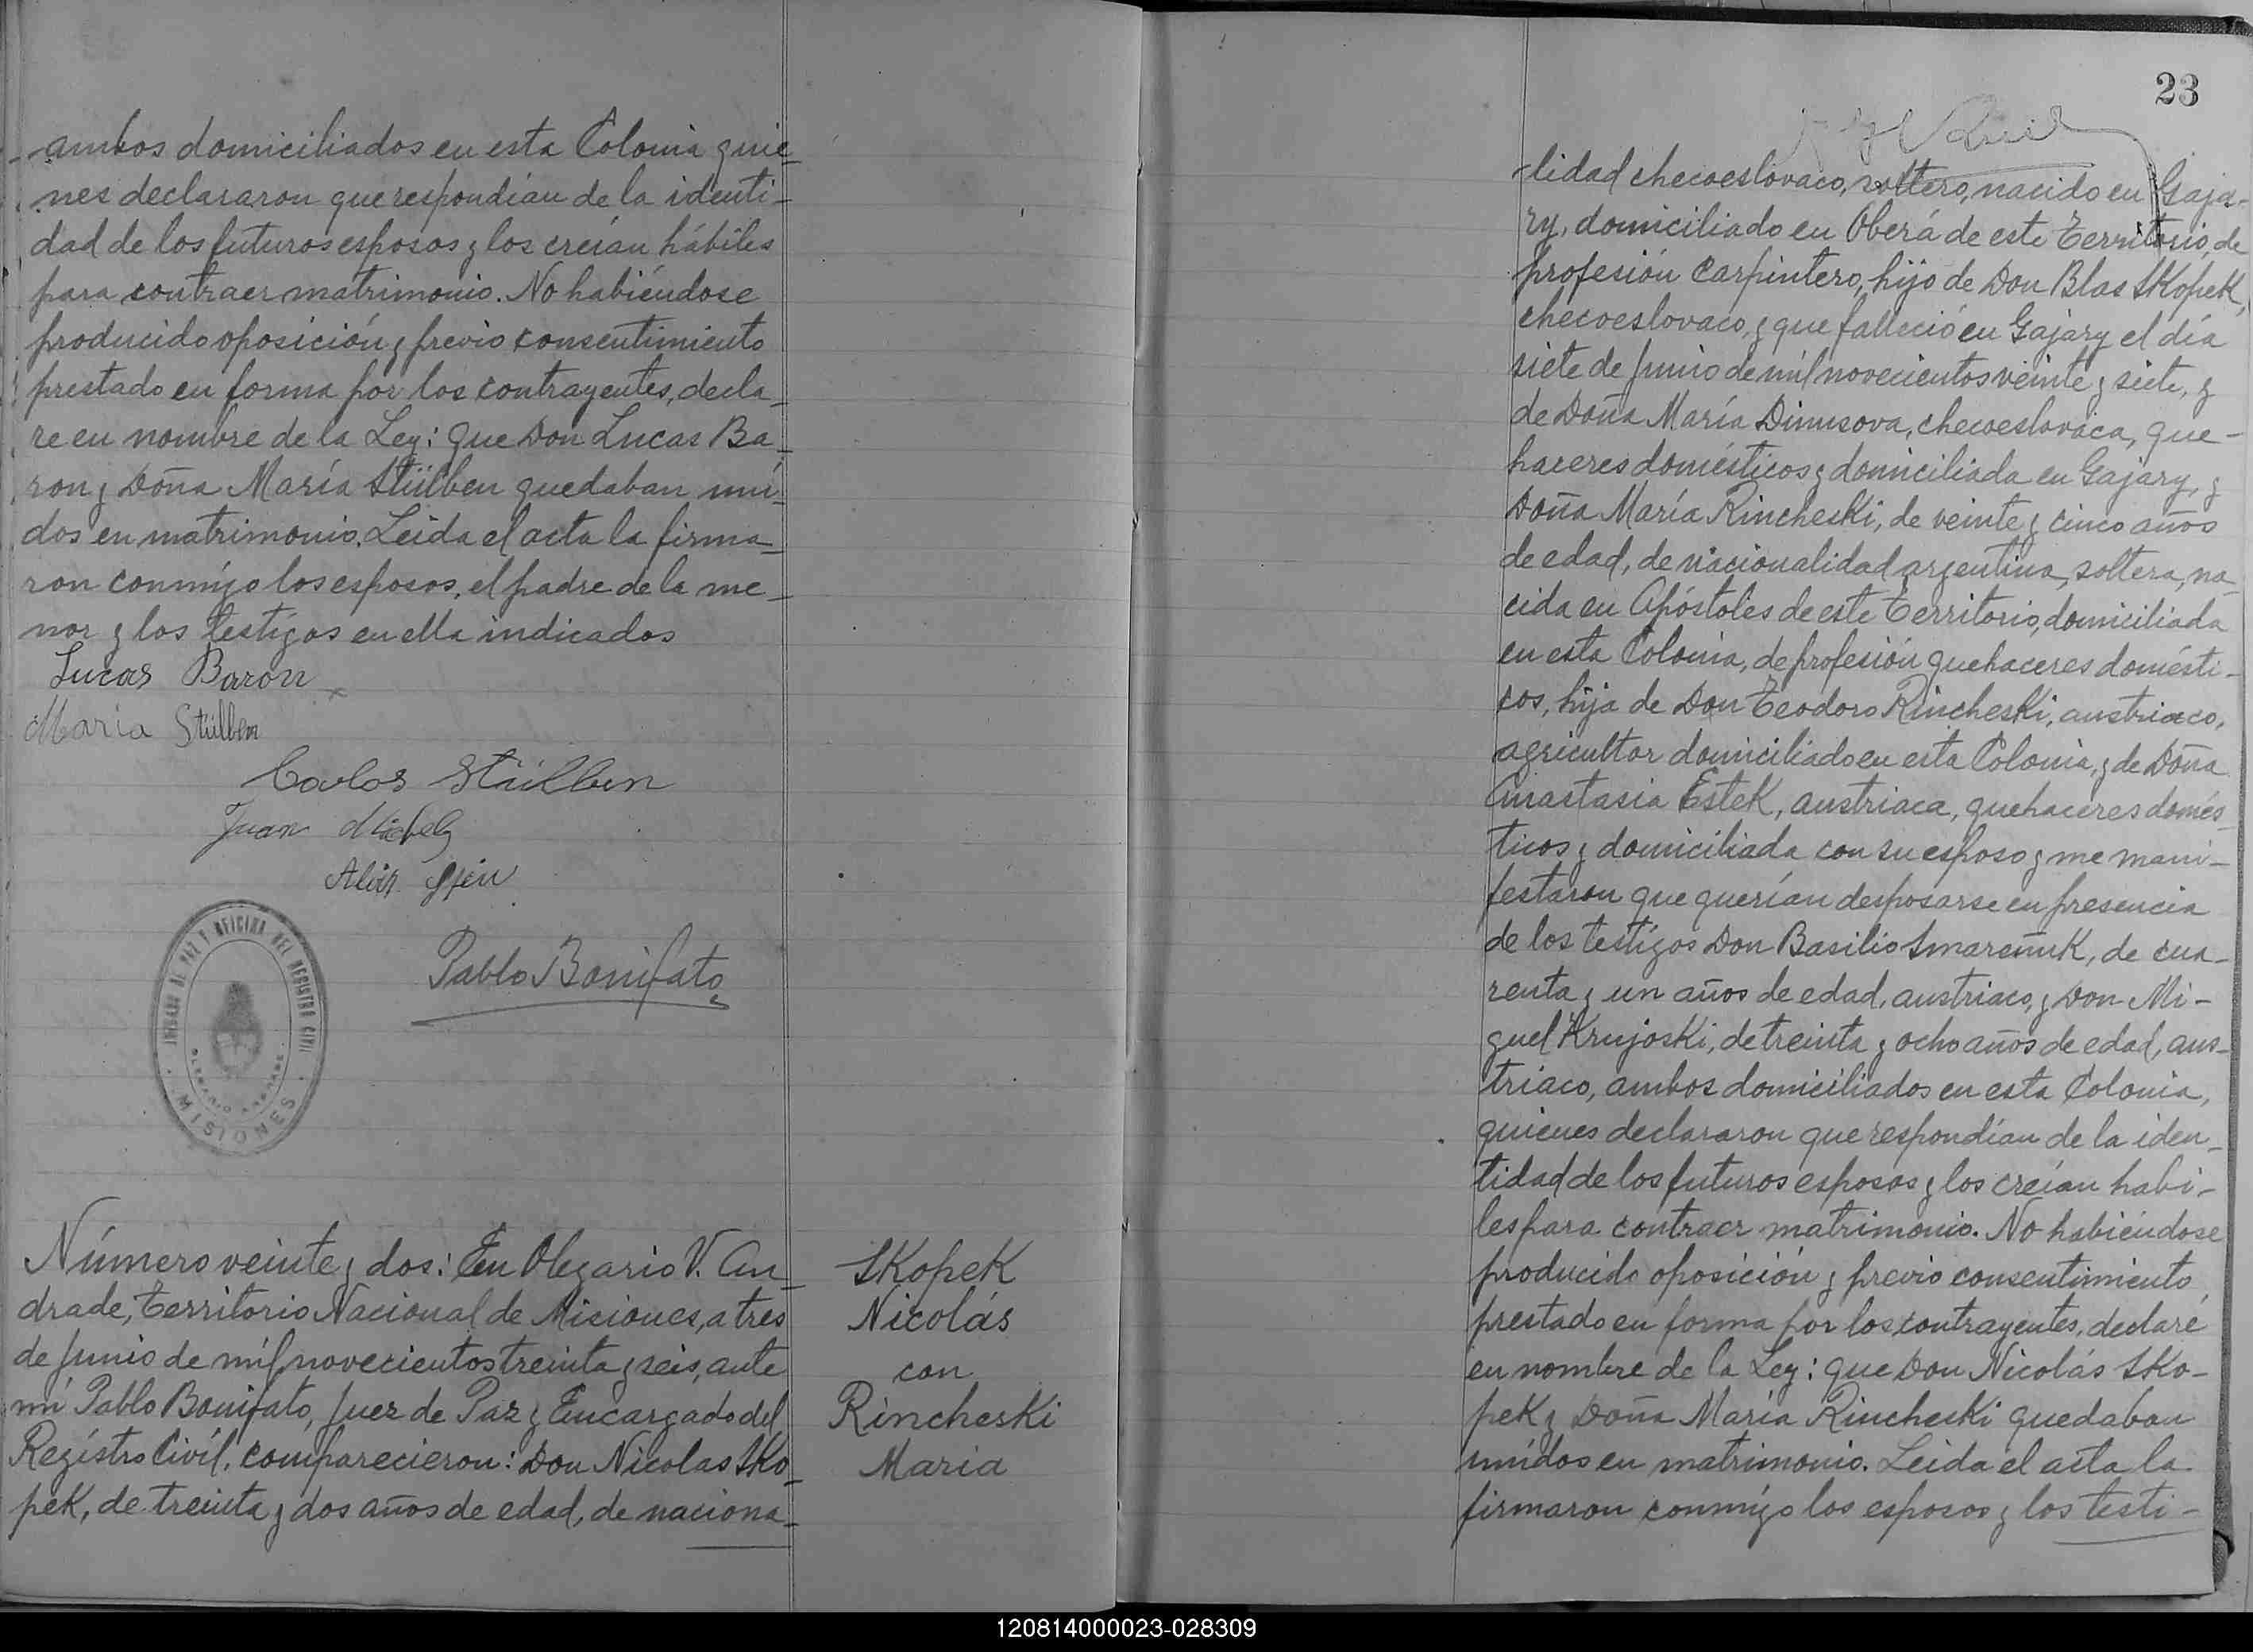 ambos domiciliados en esta Colonia quie-
nes declararon que respondían de la identi-
dad de los futuros esposos y los creían hábiles
para contraer matrimonio. No habiéndose
producido oposición y previo consentimiento
prestado en forma por los contrayentes, decla-
re en nombre de la Ley: que Don Lucas Ba-
rón y Doña María Stülben quedaban uni-
dos en matrimonio. Leida el acta la firma-
ron conmigo los esposos, el padre de la me-
nor y los testigos en ella indicados
Lucas Baron
Maria Stülben
Carlos Stülben
Juan
Pablo Bonifato
JUZGADO DE PAZ Y OFICINA DEL REGISTRO CIVIL
OLEGARIO V. ANDRADE
MISIONES
Número veinte y dos: En Olegario V. An-
drade, Territorio Nacional de Misiones, a tres
de Junio de mil novecientos treinta y seis, ante
mí Pablo Bonifato, Juez de Paz y Encargado del
Registro Civíl, comparecieron: Don Nicolas Sko-
pek, de treinta y dos años de edad, de naciona-
Skopek
Nicolás
con
Rincheski
Maria
23
-lidad checoeslovaco, soltero, nacido en Gaja-
ry, domiciliado en Oberá de este Territorio, de
profesión Carpintero, hijo de Don Blas Skopek,
checoeslovaco, y que falleció en Gajary el día
siete de Junio de mil novecientos veinte y siete, y
de Doña María Dimusova, checoeslovaca, que-
haceres domésticos y domiciliada en Gajary, y
Doña María Rincheski, de veinte y cinco años
de edad, de nacionalidad argentina, soltera, na-
cida en Apóstoles de este Territorio, domiciliada
en esta Colonia, de profesión quehaceres domésti-
cos, hija de Don Teodoro Rincheski, austriaco,
agricultor domiciliado en esta Colonia, y de Doña
Anastasia Estek, austriaca, quehaceres domés-
ticos y domiciliada con su esposo y me mani-
festaron que querían desposarse en presencia
de los testigos Don Basilio Smareñuk, de cua-
renta y un años de edad, austriaco, y Don Mi-
guel Krujoski, de treinta y ocho años de edad, aus-
triaco, ambos domiciliados en esta Colonia,
quienes declararon que respondían de la iden-
tidad de los futuros esposos y los creían habi-
les para contraer matrimonio. No habiéndose
producido oposición y previo consentimiento
prestado en forma por los contrayentes, declaré
en nombre de la Ley: que Don Nicolás Sko-
pek y Doña María Rincheski quedaban
unidos en matrimonio. Leida el acta la
firmaron conmigo los esposos y los testi-
120814000023-028309